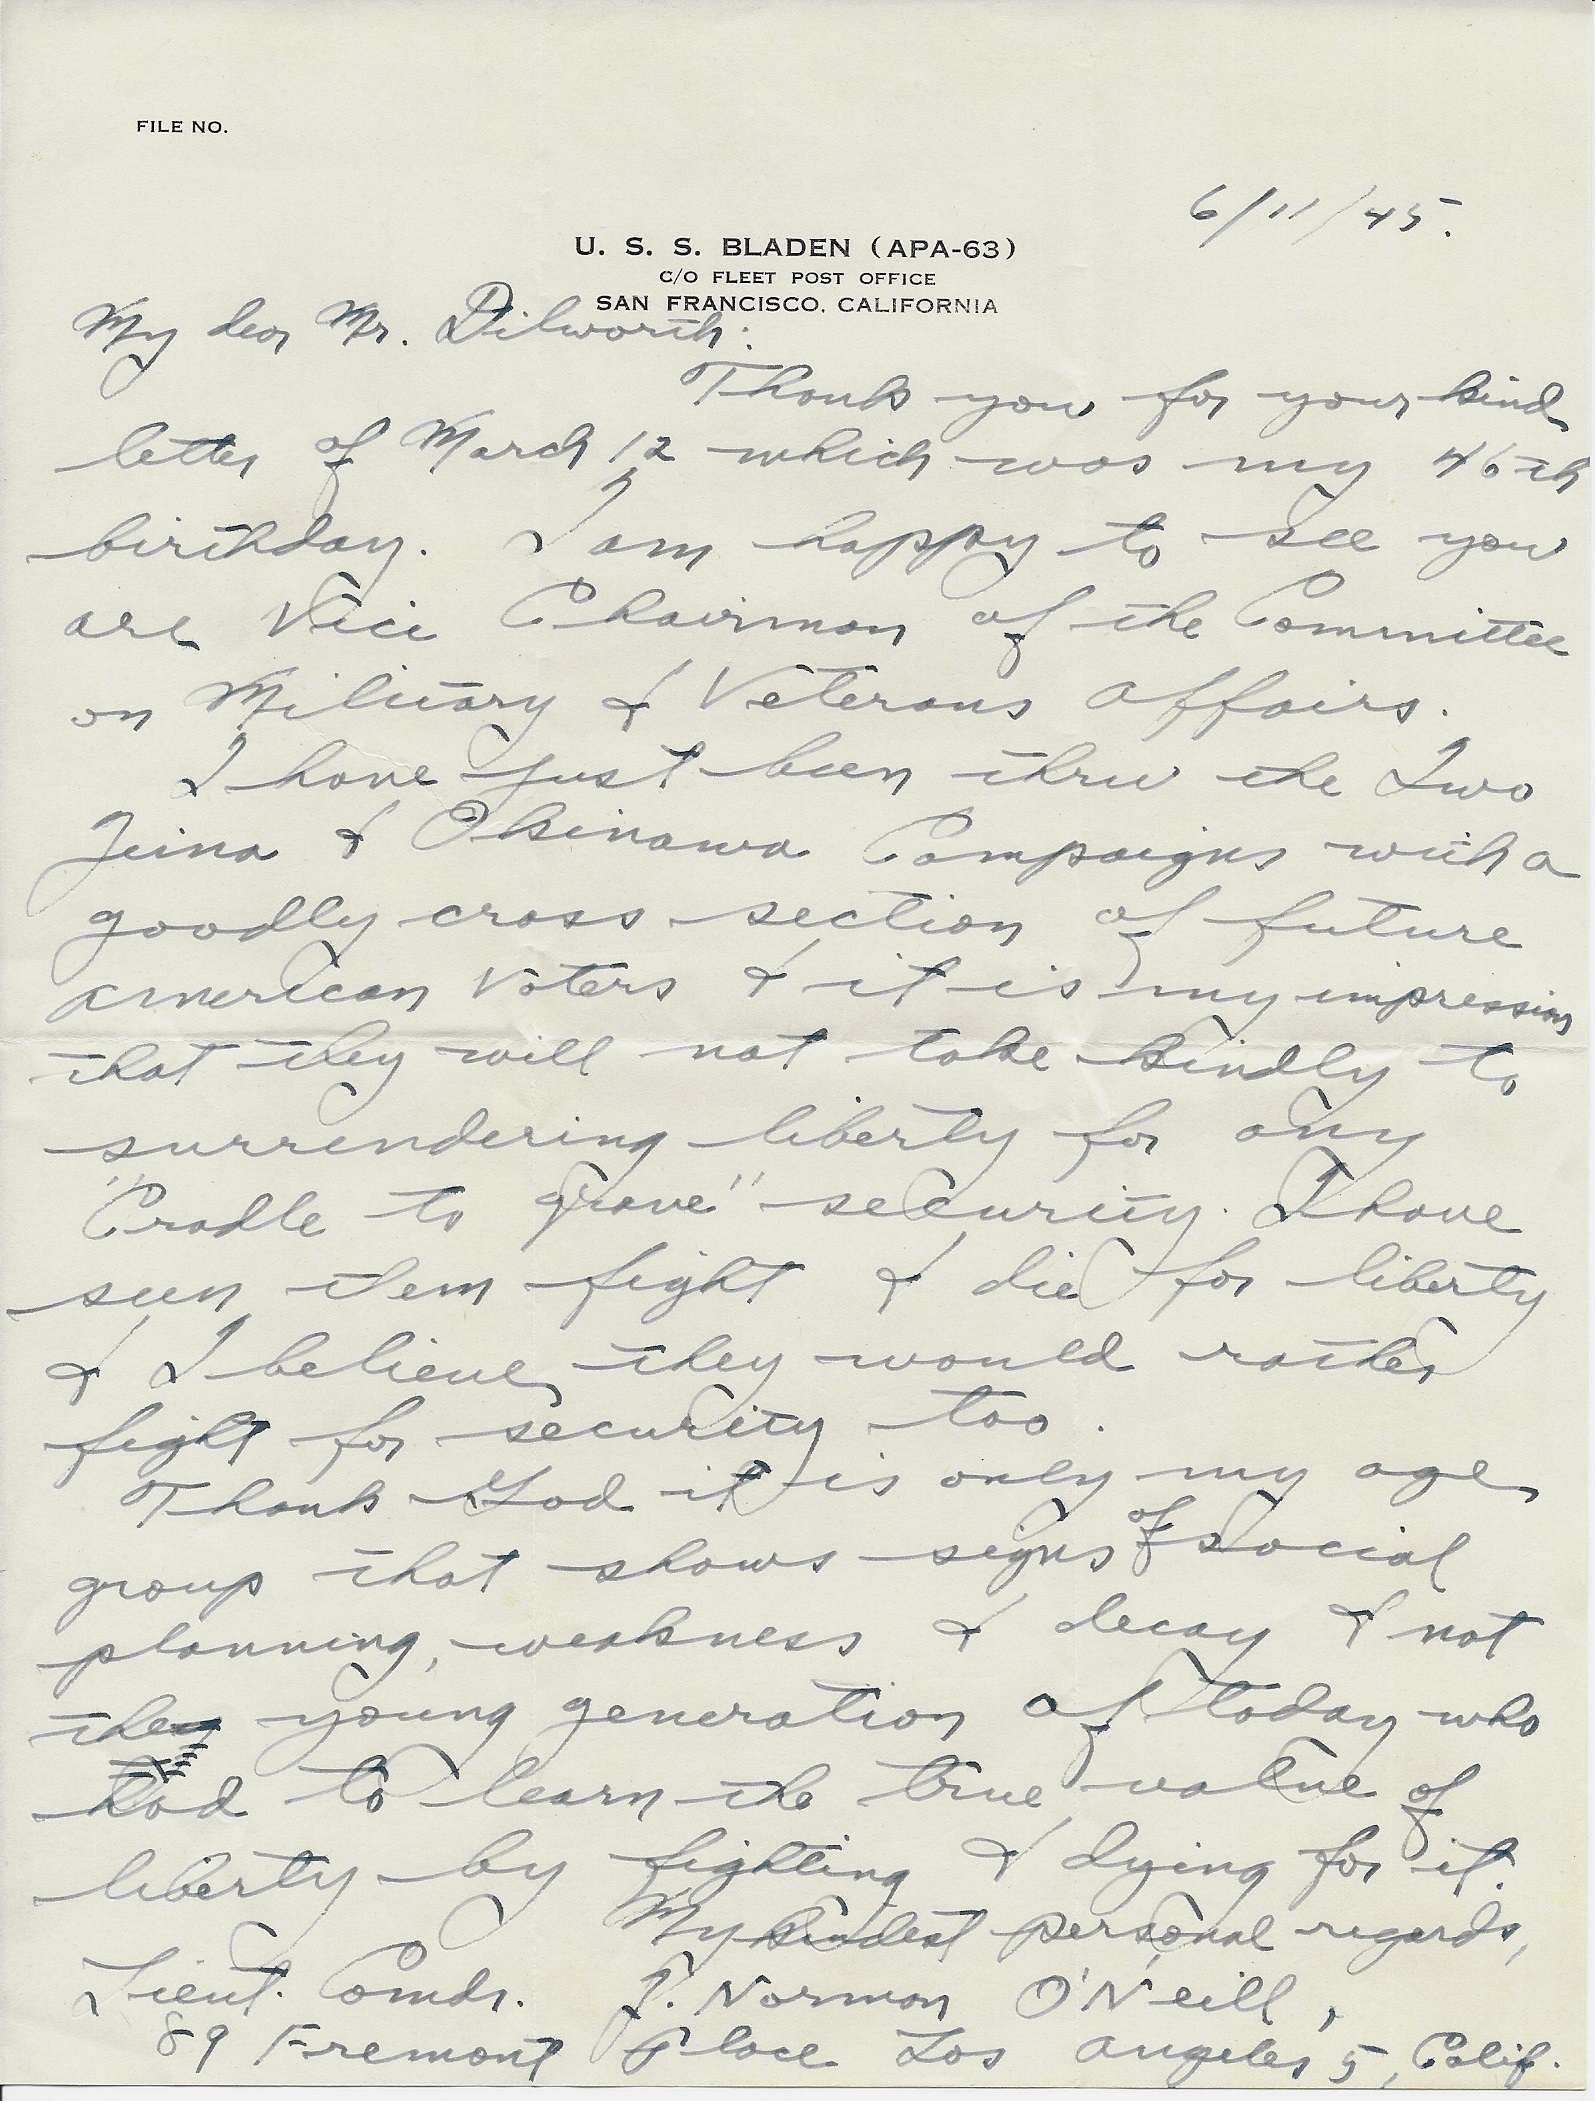 FILE NO.
6/11/45.
U. S. S. BLADEN (APA-63)
C/O FLEET POST OFFICE
SAN FRANCISCO, CALIFORNIA
My dear Mr. Dilworth:
Thank you for your kind
letter of March 12, which was my 46th
birthday. I am happy to see you
are Vice Chairman of the Committee
on Military & Veterans Affairs.
I have just been thru the Iwo
Jima & Okinawa Campaigns with a
goodly cross section of future
American voters & it is my impression
that they will not take kindly to
surrendering liberty for any
"Cradle to grave" security. I have
seen them fight & die for liberty
& I believe they would rather
fight for security too.
Thank God it is only my age
group that shows signs of social
planning, weakness & decay & not
the young generation of today who
had to learn the true value of
liberty by fighting & dying for it.
My kindest personal regards,
Lieut. Comdr. J. Norman O'Neill,
89 Fremont Place Los Angeles 5, Calif.